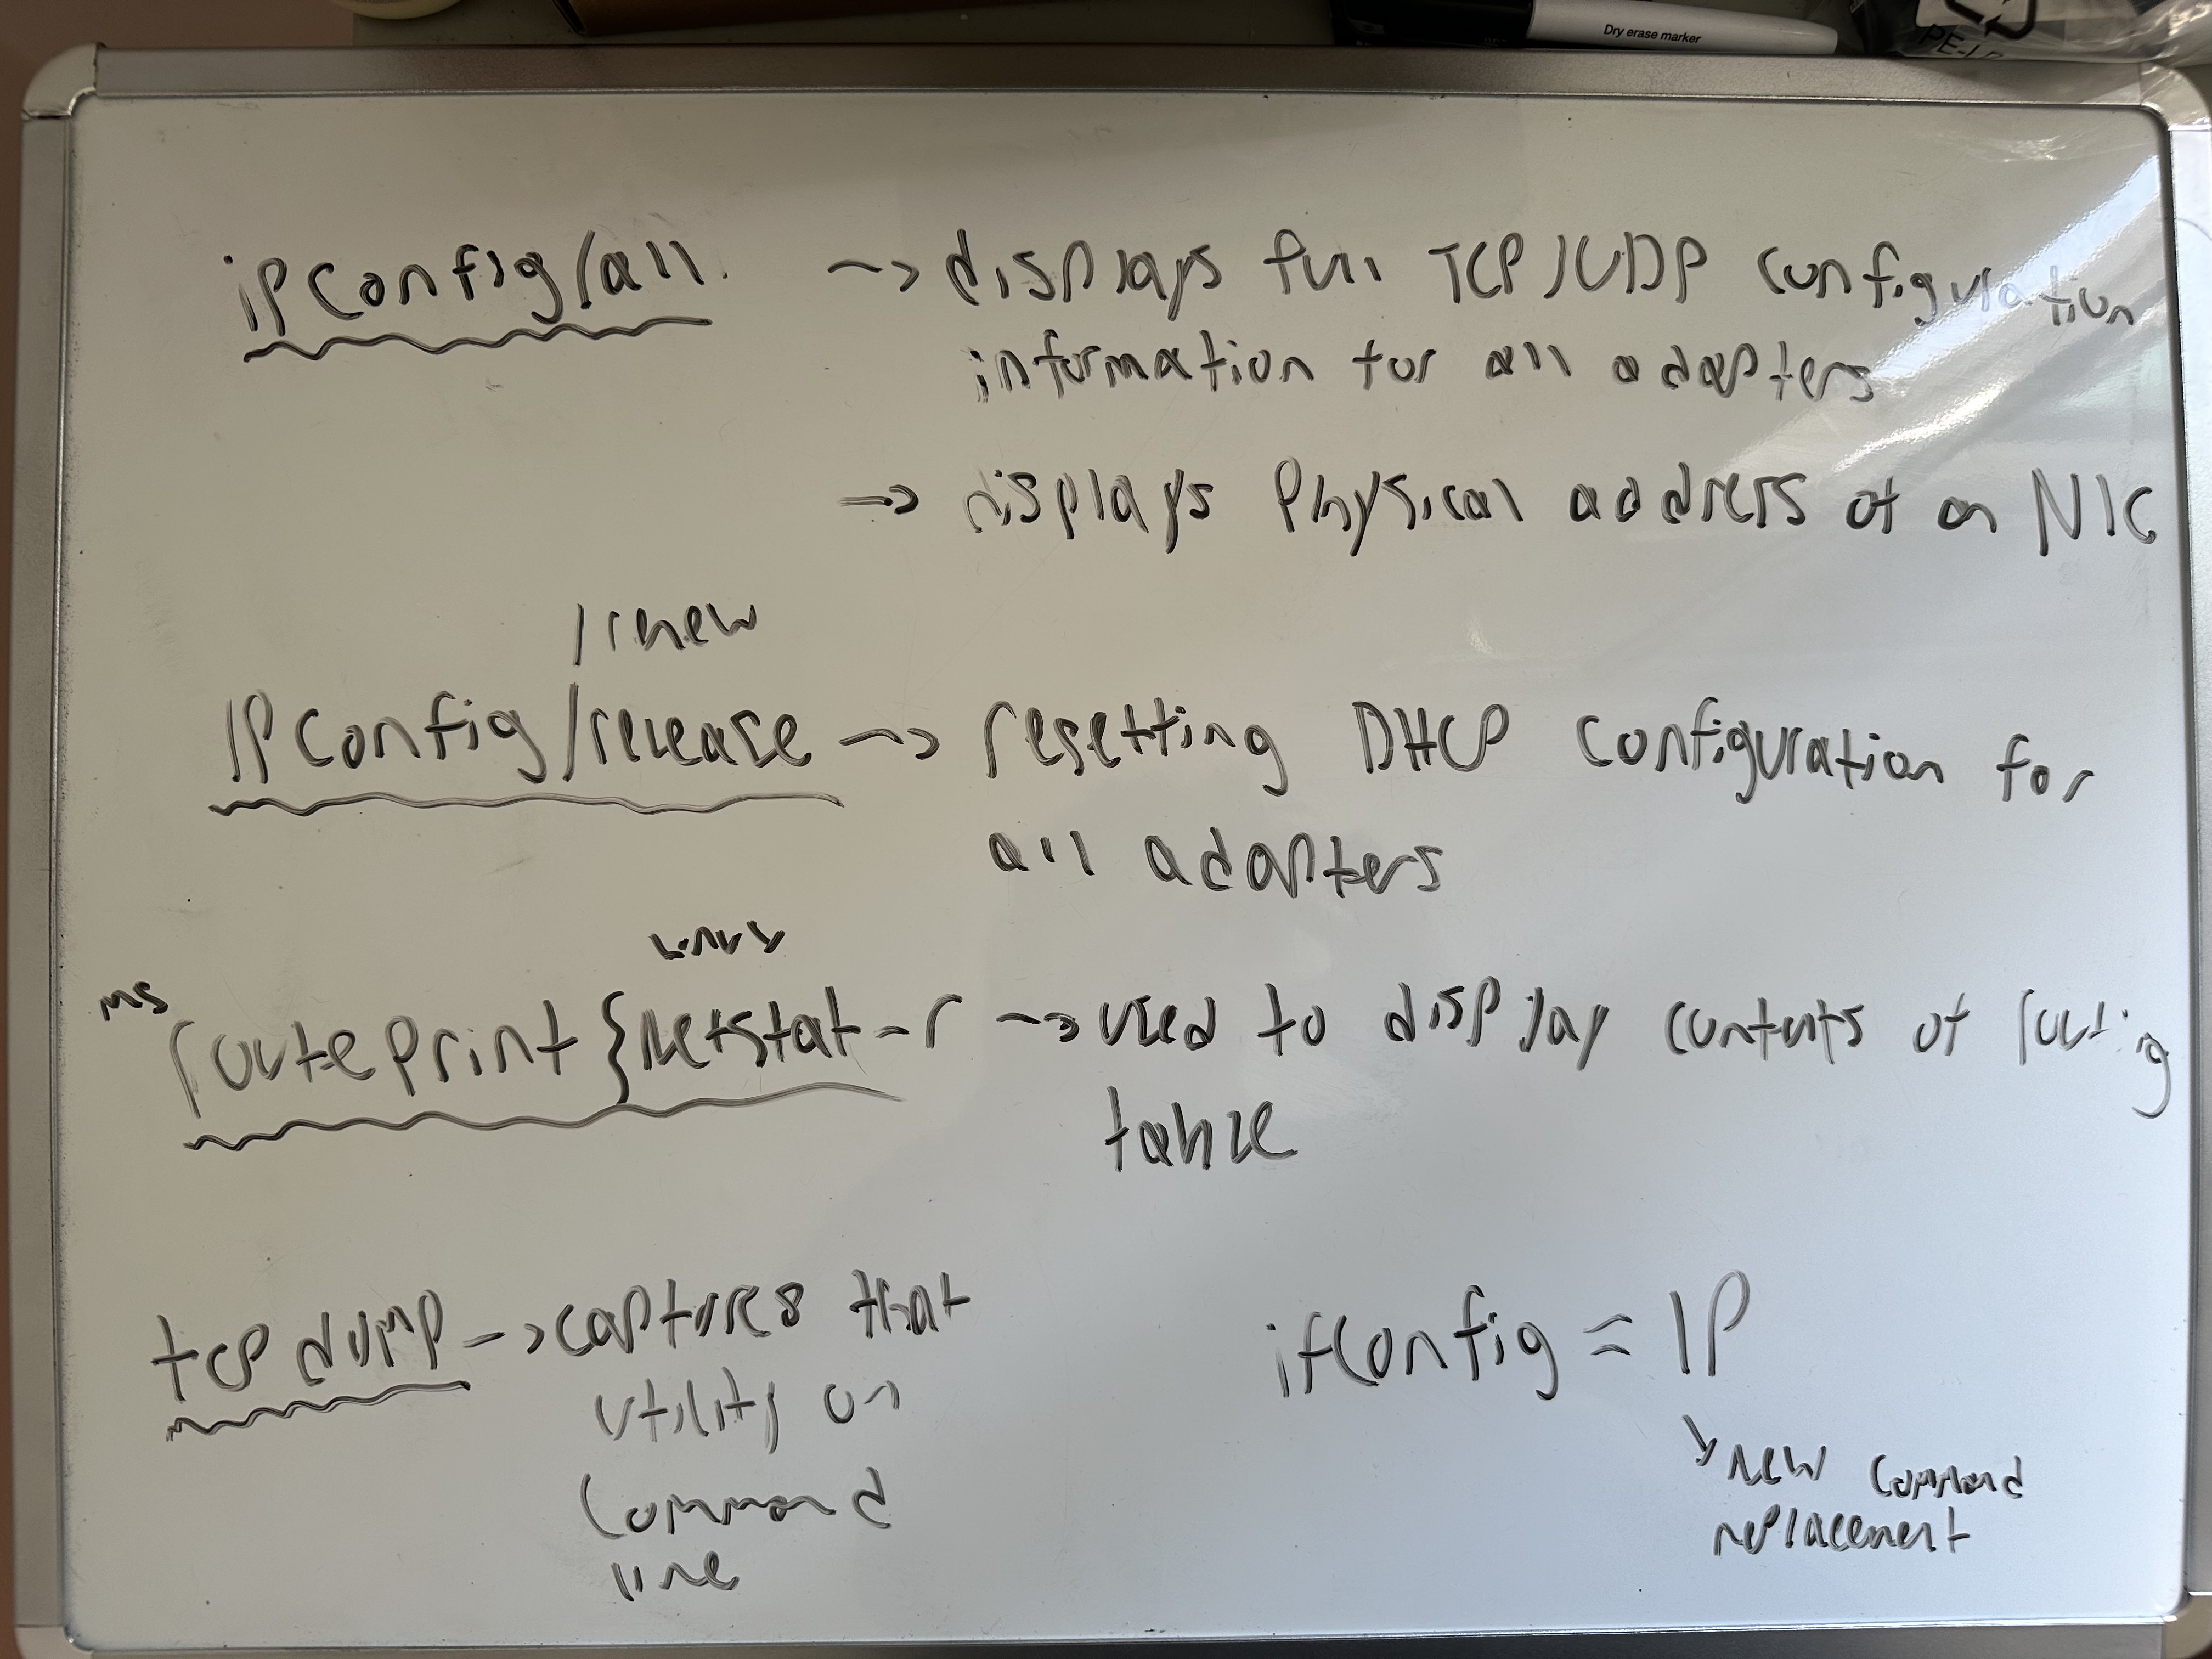 Dry erase marker
PE-L
ipconfig/all. -> displays full TCP/UDP configuration
information for all adapters
-> displays physical address of an NIC
/renew
IPconfig/release -> resetting DHCP configuration for
all adapters
MS
route print } Netstat -r -> used to display contents of routing
table
tcp dump -> captures that
utility on
command
line
ifconfig = IP
new command
replacement